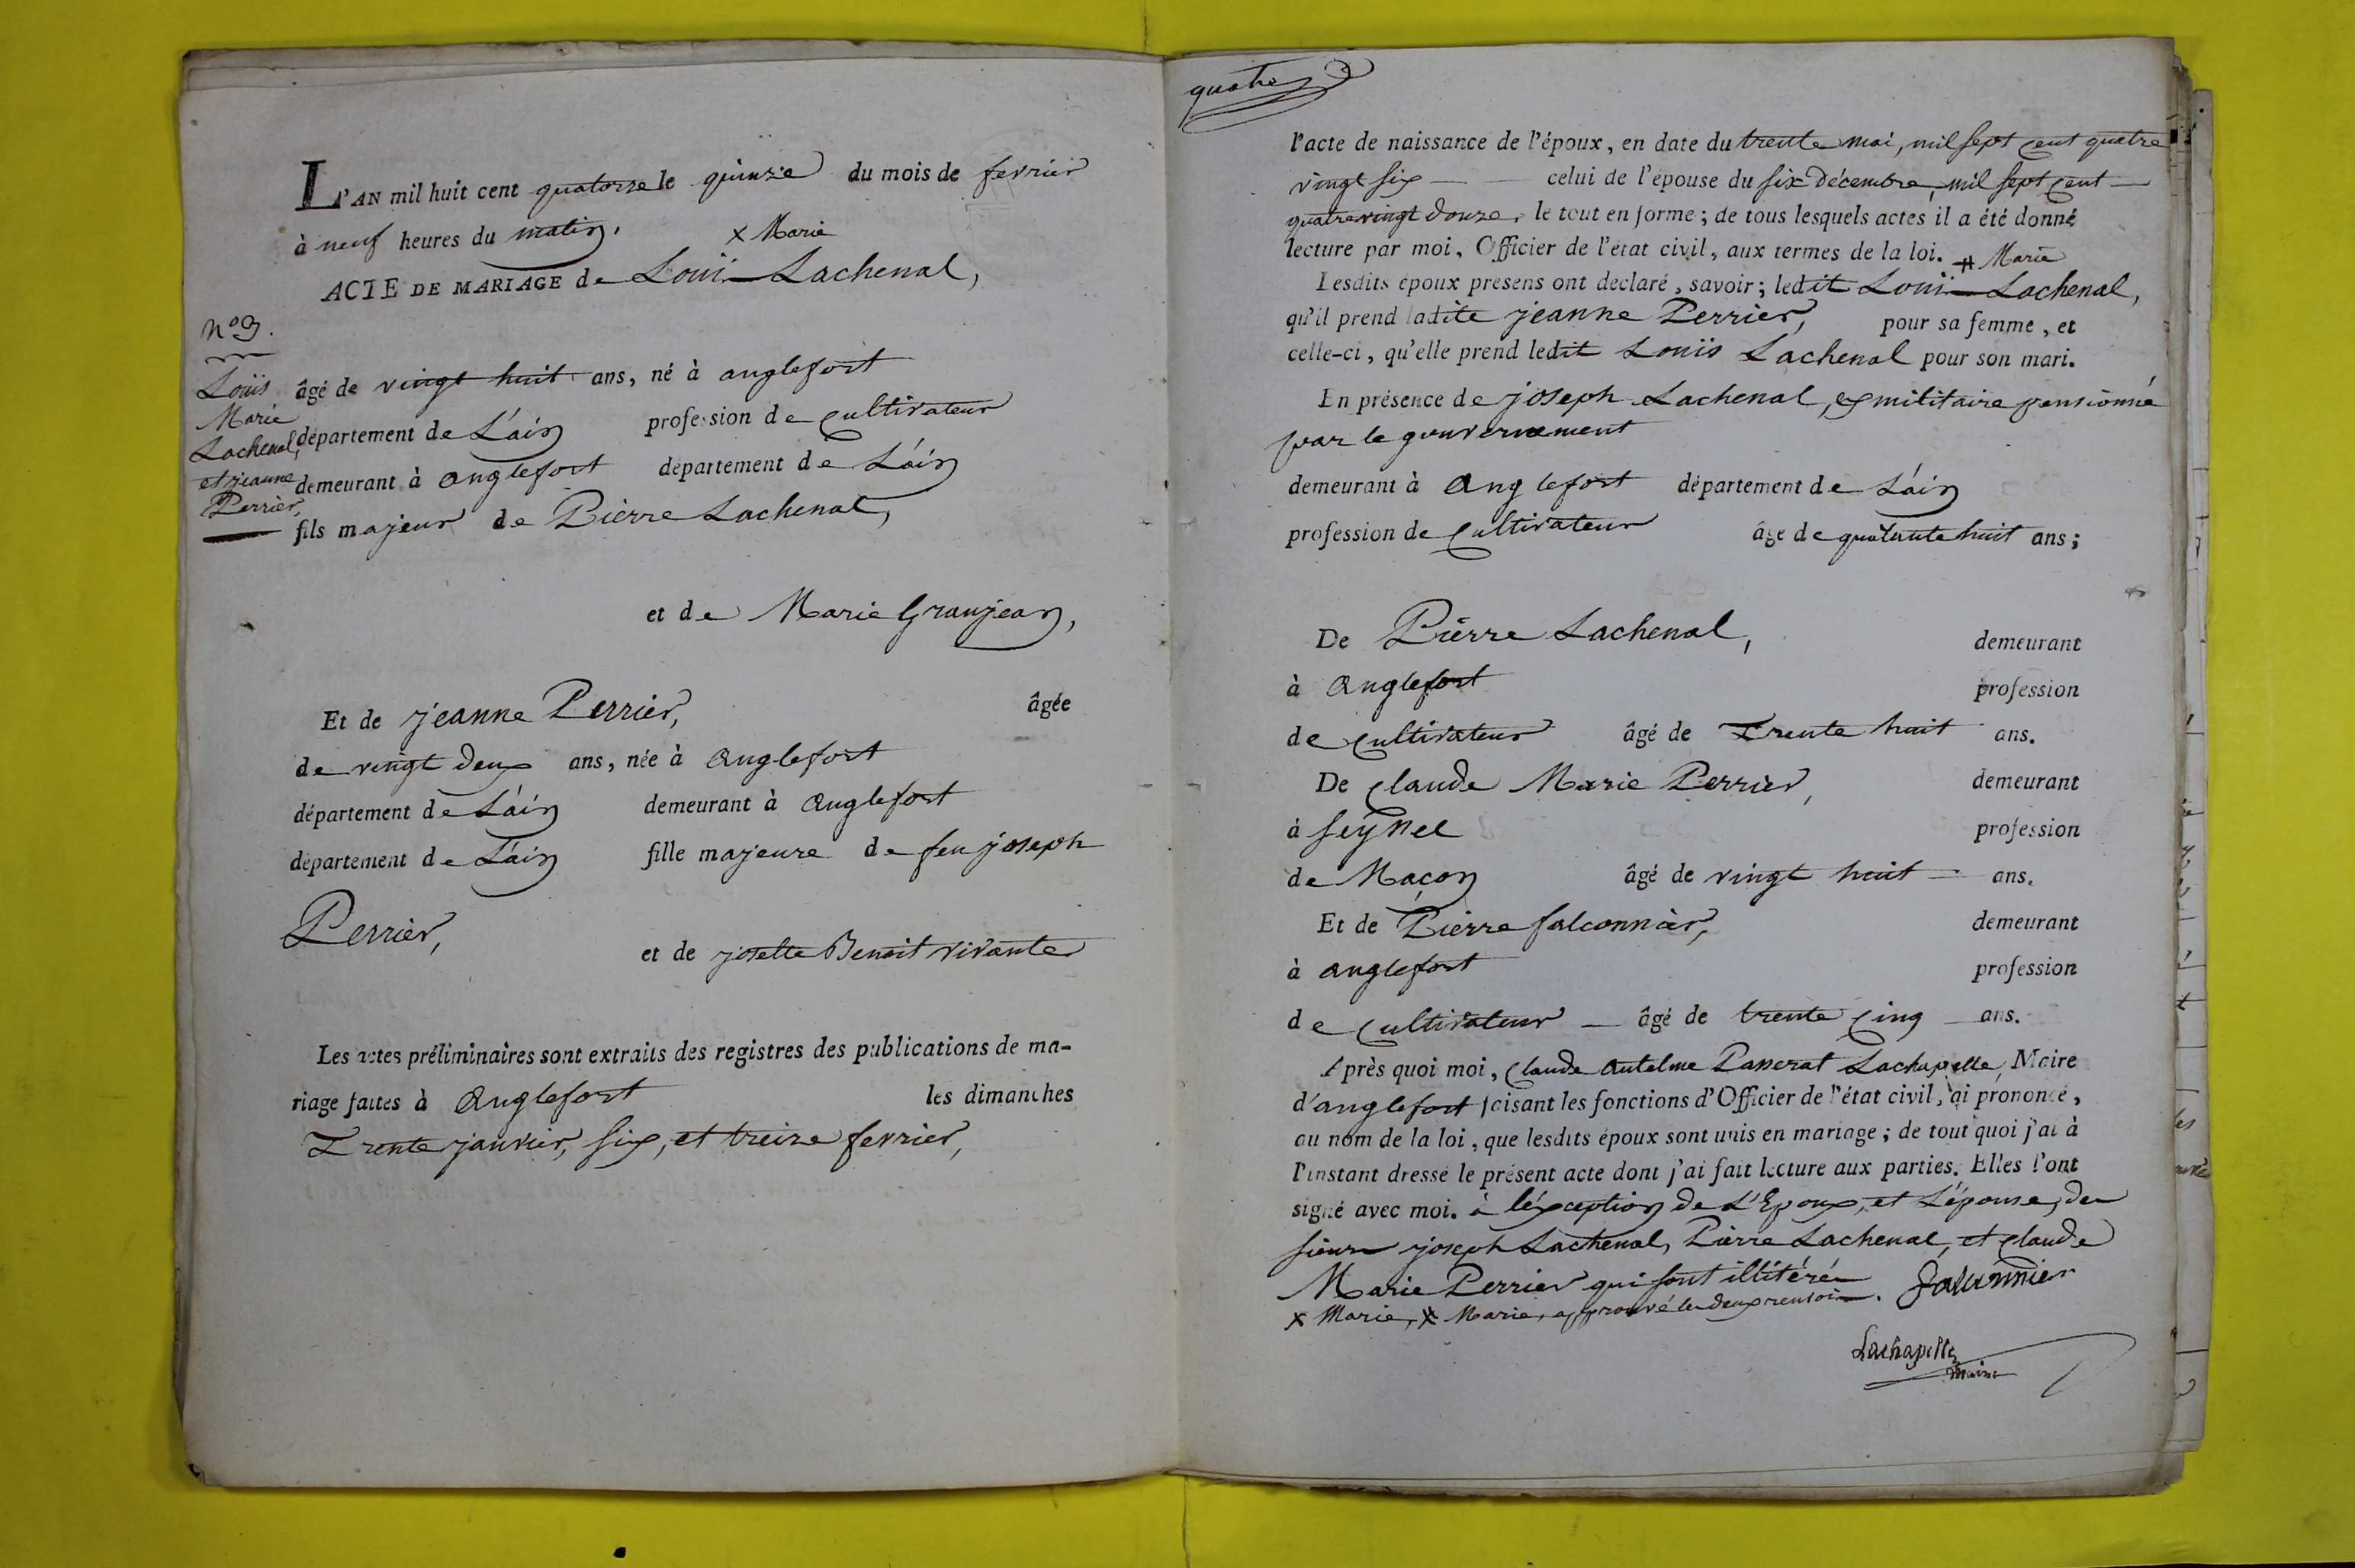 L'AN mil huit cent quatorze le quinze du mois de fevrier
à neuf heures du matin,
x Marie
ACTE DE MARIAGE de Louis Lachenal,
n° 3.
Louis
Marie
Lachenal,
et jeanne
Perrier,
âgé de vingt huit ans, né à anglefort
département de L'ain profession de cultivateur
demeurant à anglefort département de L'ain
fils majeur de Pierre Lachenal,
et de Marie Granjean,
Et de jeanne Perrier, âgée
de vingt deux ans, née à anglefort
département de L'ain demeurant à anglefort
département de L'ain fille majeure de feu joseph
Perrier,
et de josette Benoit vivante
Les actes préliminaires sont extraits des registres des publications de ma-
riage faites à anglefort les dimanches
Trente janvier, six, et treize fevrier,
quatre
l'acte de naissance de l'époux, en date du trente mai, mil sept cent quatre
vingt six — celui de l'épouse du six décembre, mil sept cent
quatre vingt douze, le tout en forme ; de tous lesquels actes il a été donné
lecture par moi, Officier de l'état civil, aux termes de la loi.
# Marie
Lesdits époux présens ont déclaré, savoir ; ledit Louis Lachenal,
qu'il prend ladite jeanne Perrier, pour sa femme, et
celle-ci, qu'elle prend ledit Louis Lachenal pour son mari.
En présence de joseph Lachenal, ex militaire pensionné
par le gouvernement
demeurant à anglefort département de L'ain
profession de cultivateur âgé de quarante huit ans ;
De Pierre Lachenal, demeurant
à anglefort profession
de cultivateur âgé de Trente huit ans.
De claude Marie Perrier, demeurant
à seyssel profession
de Maçon âgé de vingt huit ans.
Et de Pierre falconnier, demeurant
à anglefort profession
de cultivateur — âgé de trente cinq — ans.
Après quoi moi, claude antelme Passerat Lachapelle, Maire
d'anglefort faisant les fonctions d'Officier de l'état civil, ai prononcé,
au nom de la loi, que lesdits époux sont unis en mariage ; de tout quoi j'ai à
l'instant dressé le présent acte dont j'ai fait lecture aux parties. Elles l'ont
signé avec moi. à l'éxception de L'Epoux, et L'épouse, des
sieurs joseph Lachenal, Pierre Lachenal, et claude
Marie Perrier qui sont illitérés.
x Marie, # Marie, approuvé les deux renvois.
Falconnier
Lachapelle
maire